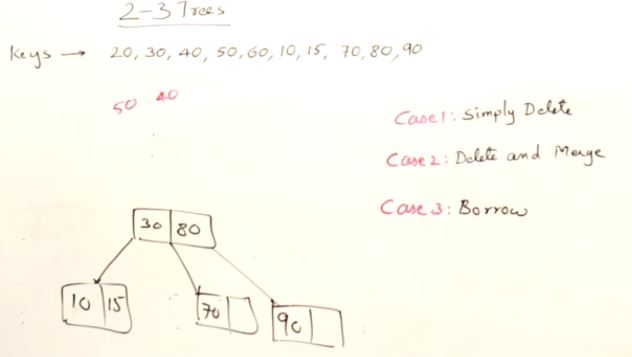 2-3 Trees
Keys → 20, 30, 40, 50, 60, 10, 15, 70, 80, 90
50 40
Case 1: Simply Delete
Case 2: Delete and Merge
Case 3: Borrow
30 80
10 15
70
90